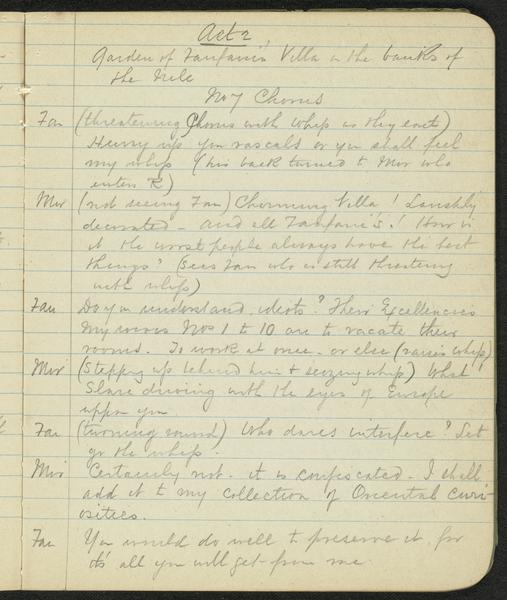 Act 2,
Garden of Fanfani's Villa on the banks of
the Nile
No 7 Chorus
Fan (threatening Chorus with whip as they exit)
Hurry up you rascals or you shall feel
my whip (his back turned to Mir who
enters R)
Mir (not seeing Fan) Charming Villa! Lavishly
decorated - and all Fanfani's! How is
it the worst people always have the best
things? (sees Fan who is still threatening
with whip)
Fan Do you understand, idiots? Their Excellencies
my wives Nos 1 to 10 are to vacate their
rooms. To work at once - or else (raises whip)
Mir (Stepping up behind him & seizing whip) What
Slave driving with the eyes of Europe
upon you
Fan (turning round) Who dares interfere? Let
go the whip.
Mir Certainly not. it is confiscated - I shall
add it to my collection of Oriental curi-
osities.
Fan You would do well to preserve it, for
it's all you will get from me.